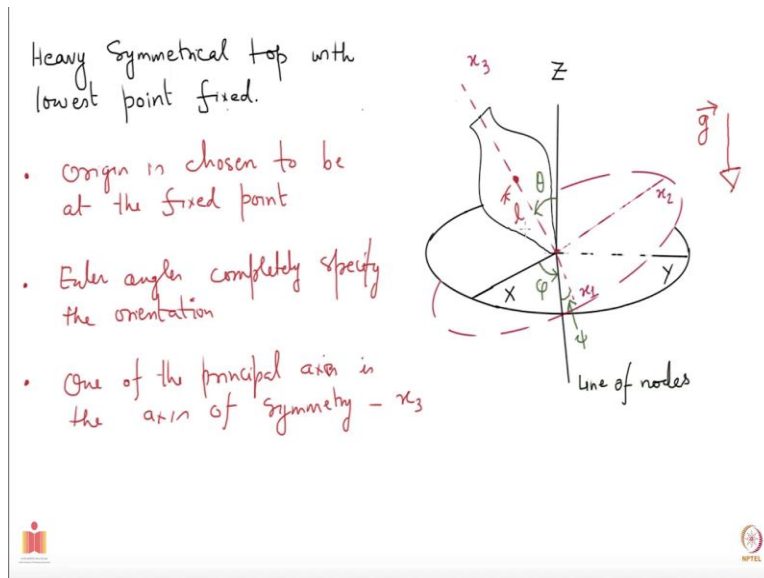 Heavy Symmetrical top with
lowest point fixed.
• Origin is chosen to be
at the fixed point
• Euler angles completely specify
the orientation
• One of the principal axis is
the axis of symmetry – x₃
x₃
Z
g
θ
x₂
l
X
φ
x₁
Y
ψ
Line of nodes
NPTEL